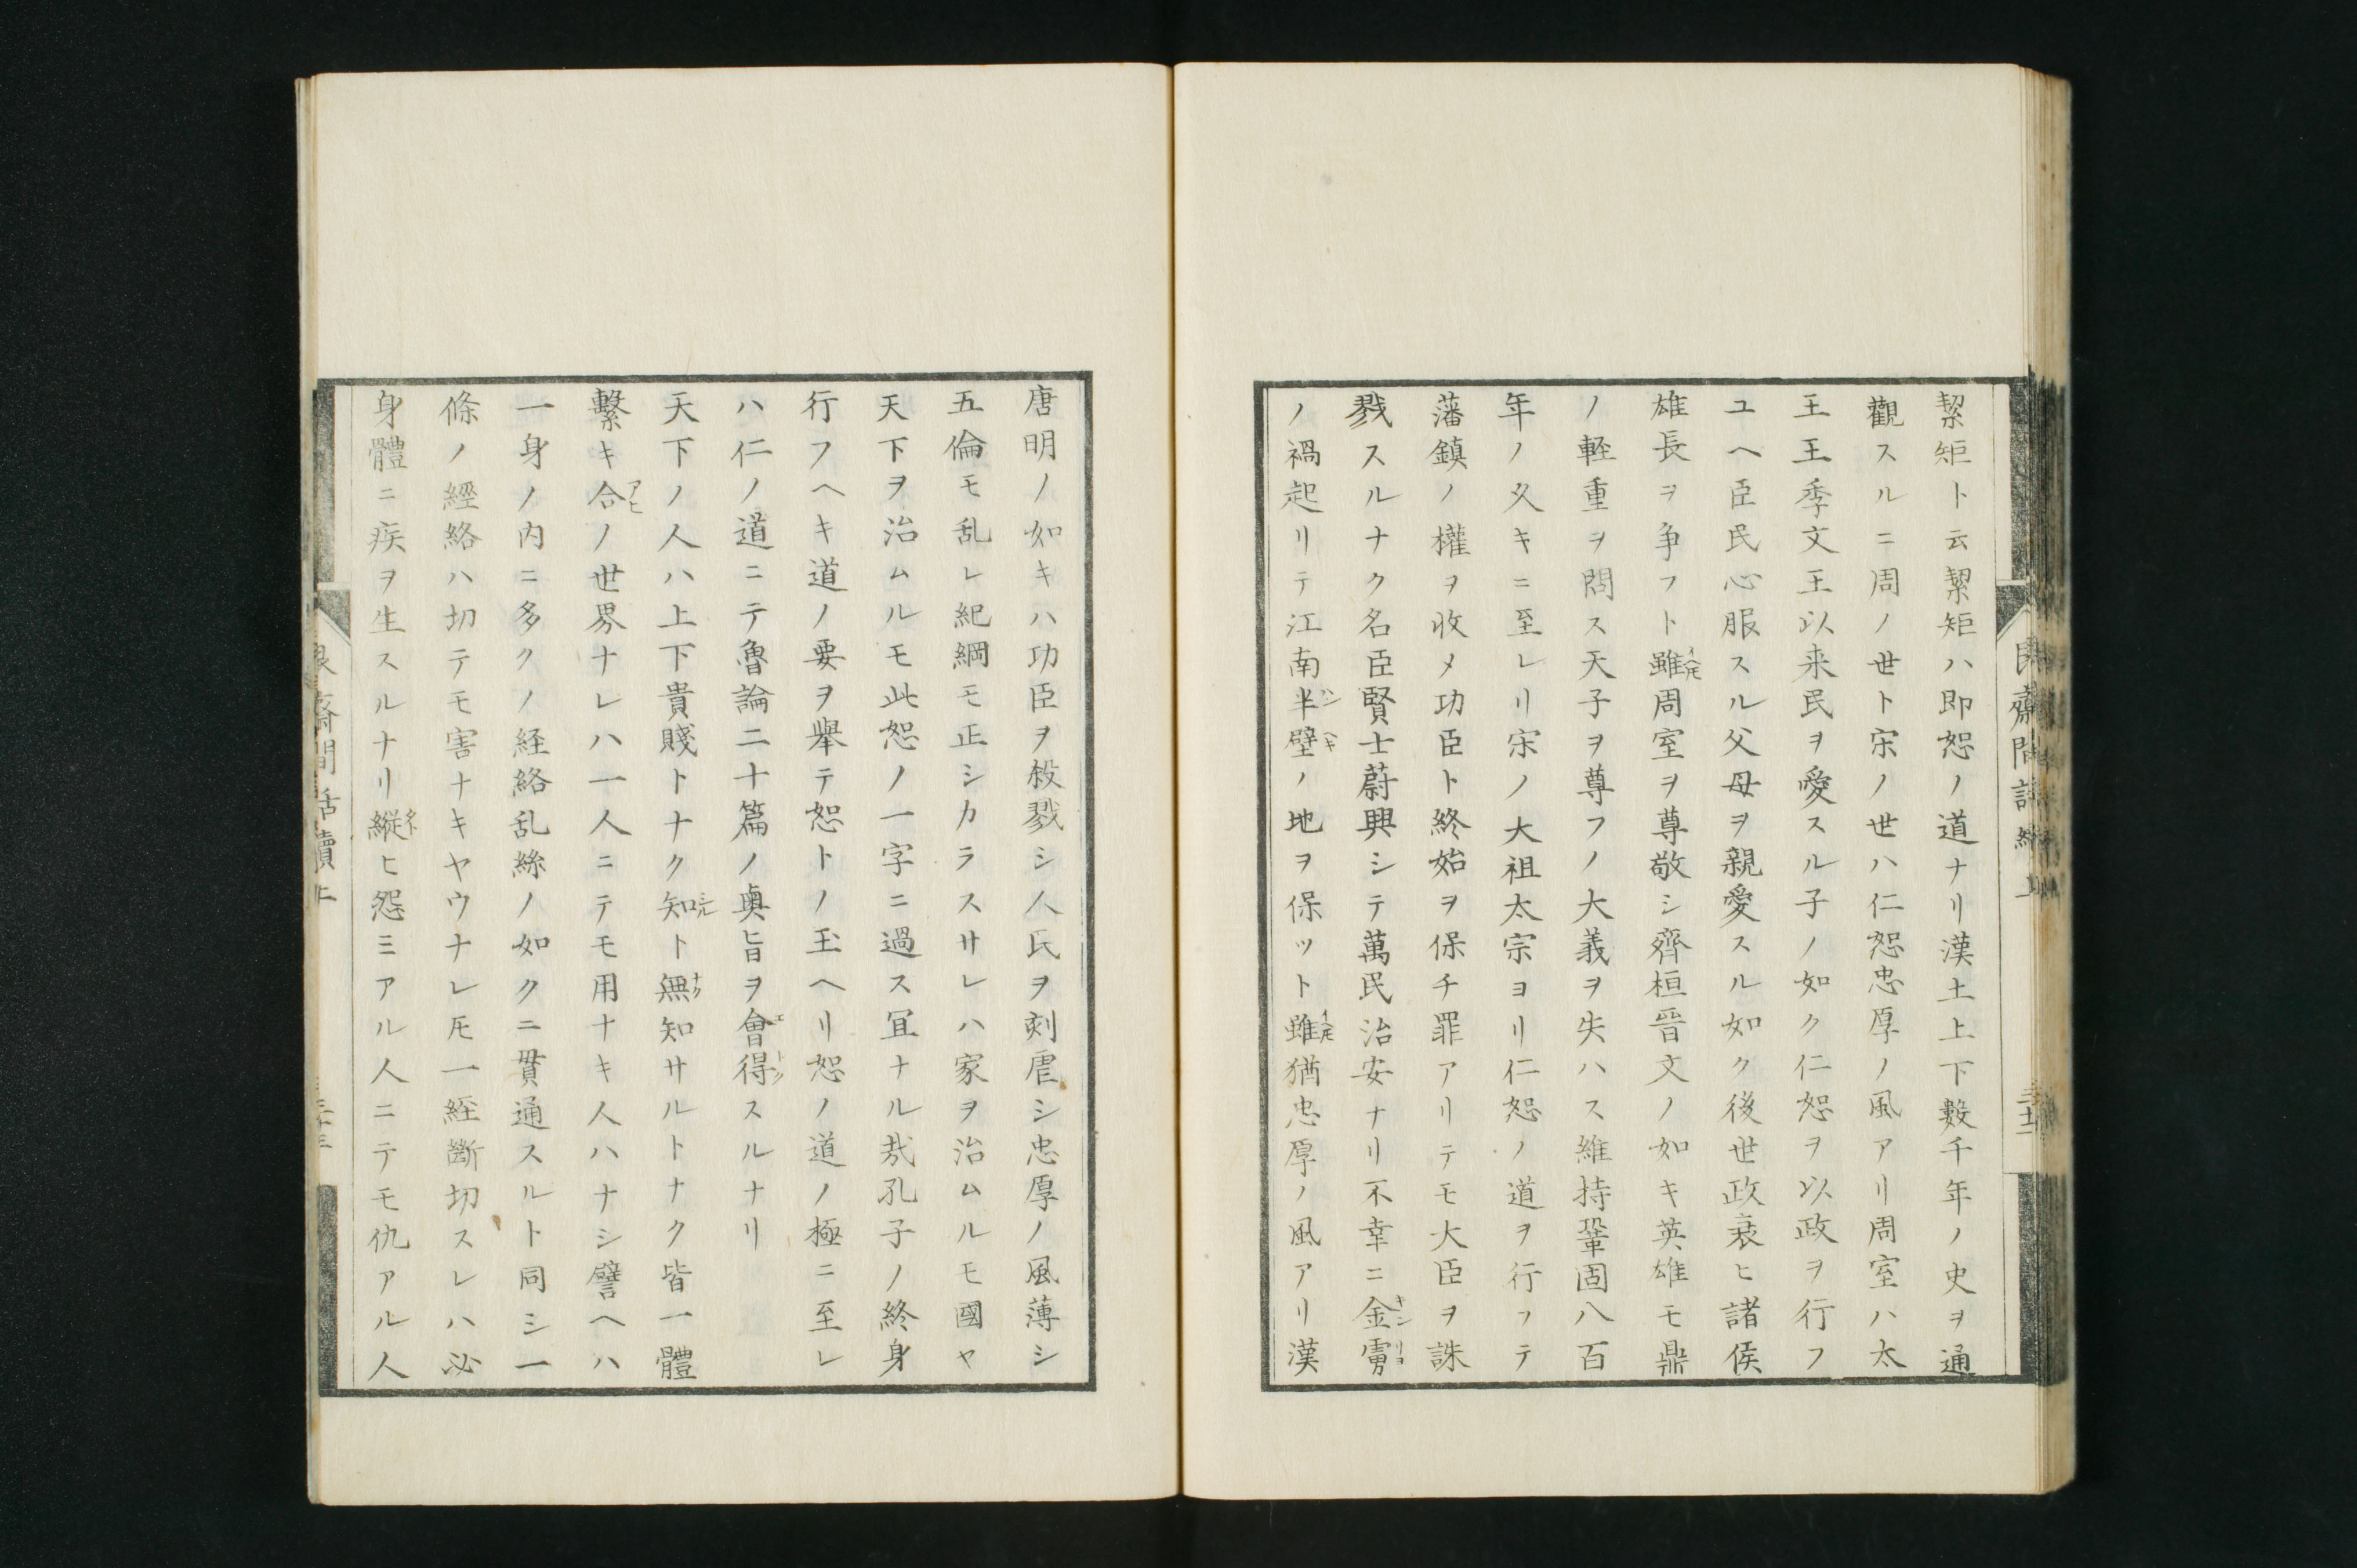 絜矩ト云絜矩ハ即恕ノ道ナリ漢土上下數千年ノ史ヲ通
觀スルニ周ノ世ト宋ノ世ハ仁恕忠厚ノ風アリ周室ハ太
王王季文王以来民ヲ愛スル子ノ如ク仁恕ヲ以政ヲ行フ
ユヘ臣民心服スル父母ヲ親愛スル如ク後世政衰ヒ諸侯
雄長ヲ争フト雖周室ヲ尊敬シ齊桓晉文ノ如キ英雄モ鼎
ノ軽重ヲ問ス天子ヲ尊フノ大義ヲ失ハス維持鞏固八百
年ノ久キニ至レリ宋ノ大祖太宗ヨリ仁恕ノ道ヲ行フテ
藩鎮ノ權ヲ收メ功臣ト終始ヲ保チ罪アリテモ大臣ヲ誅
戮スルナク名臣賢士蔚興シテ萬民治安ナリ不幸ニ金虜
ノ禍起リテ江南半壁ノ地ヲ保ツト雖猶忠厚ノ風アリ漢
唐明ノ如キハ功臣ヲ殺戮シ人民ヲ刻虐シ忠厚ノ風薄シ
五倫モ乱レ紀綱モ正シカラスサレハ家ヲ治ムルモ國ヤ
天下ヲ治ムルモ此恕ノ一字ニ過ス冝ナル哉孔子ノ終身
行フヘキ道ノ要ヲ舉テ恕トノ玉ヘリ恕ノ道ノ極ニ至レ
ハ仁ノ道ニテ魯論二十篇ノ奥旨ヲ會得スルナリ
天下ノ人ハ上下貴賤トナク知ト無知サルトナク皆一體
繋キ合ノ世界ナレハ一人ニテモ用ナキ人ハナシ譬ヘハ
一身ノ内ニ多クノ経絡乱絲ノ如クニ貫通スルト同シ一
條ノ經絡ハ切テモ害ナキヤウナレ𪜈一經斷切スレハ必
身體ニ疾ヲ生スルナリ縱ヒ怨ミアル人ニテモ仇アル人